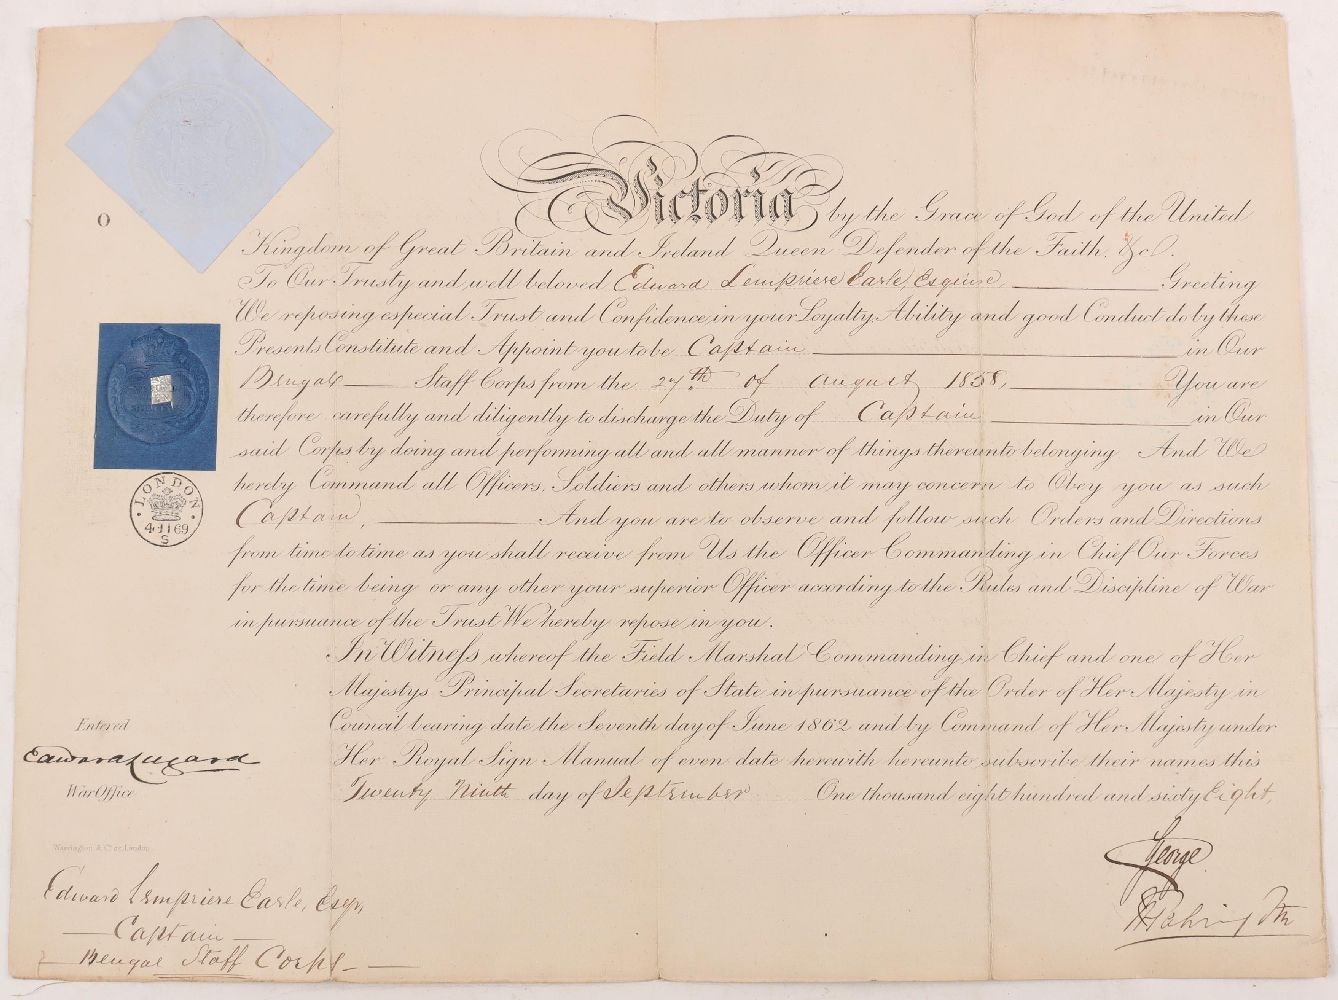 Victoria by the Grace of God of the United
Kingdom of Great Britain and Ireland Queen Defender of the Faith. &c.
To Our Trusty and well beloved Edward Lempriere Earle, Esquire, Greeting
We reposing especial Trust and Confidence in your Loyalty, Ability and good Conduct do by these
Presents Constitute and Appoint you to be Captain in Our
Bengal Staff Corps from the 27th of August 1858, You are
therefore carefully and diligently to discharge the Duty of Captain in Our
said Corps by doing and performing all and all manner of things thereunto belonging And We
hereby Command all Officers, Soldiers and others whom it may concern to Obey you as such
Captain, And you are to observe and follow such Orders and Directions
from time to time as you shall receive from Us the Officer Commanding in Chief Our Forces
for the time being or any other your superior Officer according to the Rules and Discipline of War
in pursuance of the Trust We hereby repose in you.
In Witness whereof the Field Marshal Commanding in Chief and one of Her
Majestys Principal Secretaries of State in pursuance of the Order of Her Majesty in
Council bearing date the Seventh day of June 1862 and by Command of Her Majesty under
Her Royal Sign Manual of even date herewith hereunto subscribe their names this
Twenty Ninth day of September One thousand eight hundred and sixty Eight,
George
O
LONDON
4·11 69
S
Entered
Edward Lugard
War Office
Warrington & Co. sc. London
Edward Lempriere Earle, Esqr,
Captain
Bengal Staff Corps